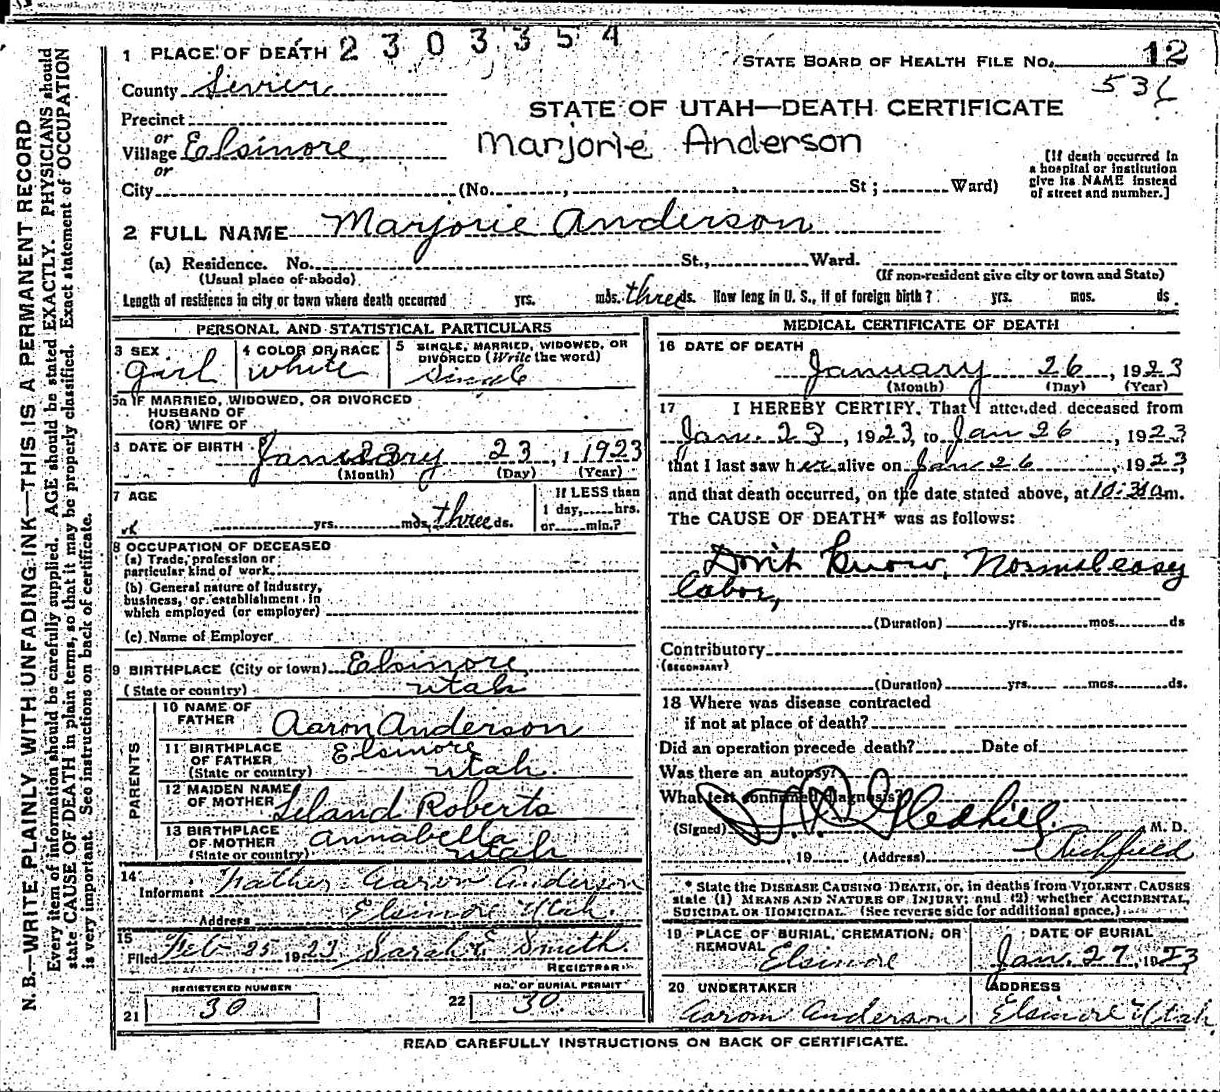 1 PLACE OF DEATH 2303354
STATE BOARD OF HEALTH FILE NO. 12
County Sevier
536
STATE OF UTAH—DEATH CERTIFICATE
Precinct
or
Village Elsinore
Marjorie Anderson
or
[If death occurred in
a hospital or institution
give its NAME instead
of street and number.]
City (No. , St ; Ward)
2 FULL NAME Marjorie Anderson
(a) Residence. No. St., Ward.
(Usual place of abode) (If non-resident give city or town and State)
Length of residence in city or town where death occurred yrs. mos. three ds. How long in U. S., if of foreign birth ? yrs. mos. ds.
PERSONAL AND STATISTICAL PARTICULARS
3 SEX girl
4 COLOR OR RACE white
5 SINGLE, MARRIED, WIDOWED, OR
DIVORCED (Write the word)
Single
5a IF MARRIED, WIDOWED, OR DIVORCED
HUSBAND OF
(OR) WIFE OF
6 DATE OF BIRTH January 23, 1923
(Month) (Day) (Year)
7 AGE
yrs. mos. three ds.
If LESS than
1 day, hrs.
or min.?
8 OCCUPATION OF DECEASED
(a) Trade, profession or
particular kind of work
(b) General nature of Industry,
business, or establishment in
which employed (or employer)
(c) Name of Employer
9 BIRTHPLACE (City or town) Elsinore
(State or country) Utah
PARENTS
10 NAME OF
FATHER Aaron Anderson
11 BIRTHPLACE
OF FATHER Elsinore
(State or country) Utah
12 MAIDEN NAME
OF MOTHER Leland Roberts
13 BIRTHPLACE
OF MOTHER Annabella
(State or country) Utah
14
Informant Father Aaron Anderson
Address Elsinore Utah
15
Filed Feb 25 1923 Sarah E Smith
REGISTRAR
REGISTERED NUMBER
21 30
NO. OF BURIAL PERMIT
22 30
MEDICAL CERTIFICATE OF DEATH
16 DATE OF DEATH
January 26, 1923
(Month) (Day) (Year)
17 I HEREBY CERTIFY, That I attended deceased from
Jan. 23, 1923, to Jan 26, 1923
that I last saw her alive on Jan 26, 1923,
and that death occurred, on the date stated above, at 10:30 a m.
The CAUSE OF DEATH* was as follows:
Don't know, Normal easy
labor,
(Duration) yrs. mos. ds
Contributory
(SECONDARY)
(Duration) yrs. mos. ds.
18 Where was disease contracted
if not at place of death?
Did an operation precede death? Date of
Was there an autopsy?
What test confirmed diagnosis?
(Signed) Gledhill M. D.
, 19 (Address) Richfield
* State the DISEASE CAUSING DEATH, or, in deaths from VIOLENT CAUSES
state (1) MEANS AND NATURE OF INJURY; and (2) whether ACCIDENTAL,
SUICIDAL or HOMICIDAL (See reverse side for additional space.)
19 PLACE OF BURIAL, CREMATION, OR
REMOVAL
Elsinore
DATE OF BURIAL
Jan. 27, 1923
20 UNDERTAKER
Aarom Anderson
ADDRESS
Elsinore Utah
READ CAREFULLY INSTRUCTIONS ON BACK OF CERTIFICATE.
N. B.—WRITE PLAINLY WITH UNFADING INK—THIS IS A PERMANENT RECORD
Every item of information should be carefully supplied. AGE should be stated EXACTLY. PHYSICIANS should
state CAUSE OF DEATH in plain terms, so that it may be properly classified. Exact statement of OCCUPATION
is very important. See instructions on back of certificate.